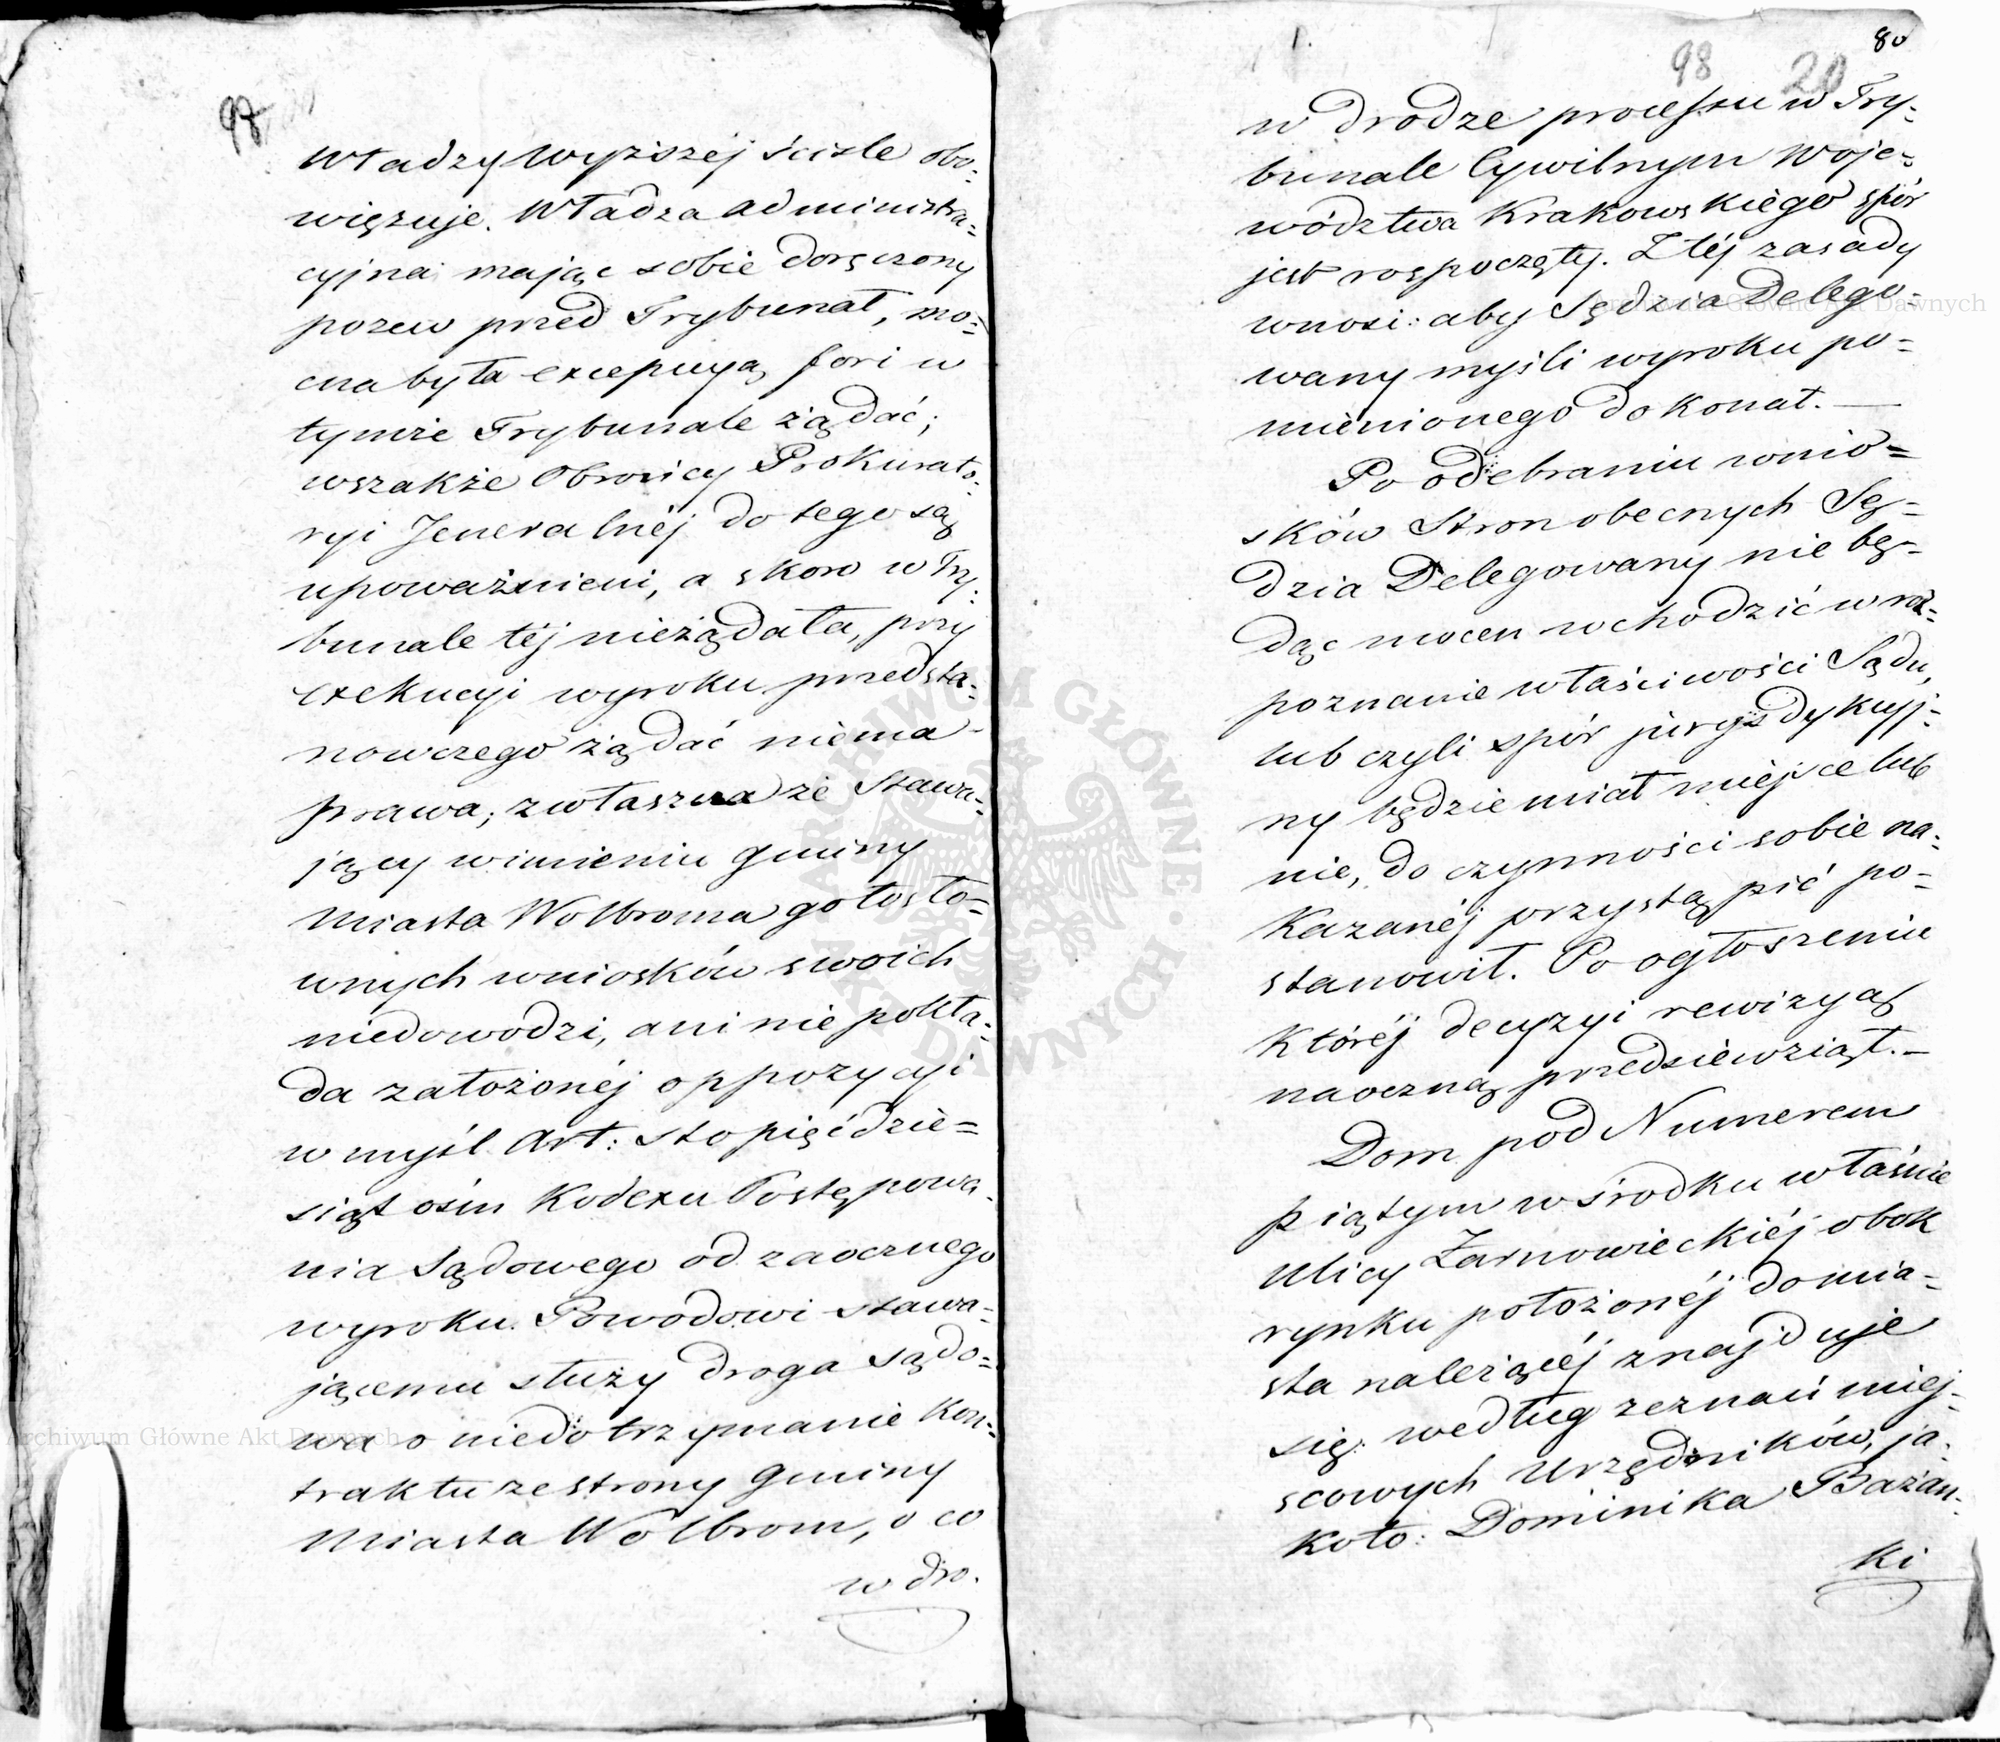 98
Władzy wyższéj ściśle obo-
więzuje. Władza administra=
cyjna mając sobie doręczony
pozew przed Trybunał, mo=
cna była excepcyą fori w
tymże Trybunale żądać;
wszakże Obrońcy Prokurato-
ryi Jeneralnéj do tego są
upoważnieni, a skoro w Try-
bunale téj nieżądała, przy
exekucyi wyroku przedsta-
nowczego żądać niema
prawa, zwłaszcza że Stawa-
jący w imieniu gminy
Miasta Wolbroma gołosło=
wnych wniosków swoich
niedowodzi, ani nie pokła-
da założonéj oppozycyi
w myśl Art: sto pięćdzie=
siąt ośm Kodexu Postępowa-
nia Sądowego od zaocznego
wyroku. Powodowi stawa=
jącemu służy droga sądo=
wa o niedotrzymanie kon-
traktu ze strony gminy
Miasta Wolbrom, o co
w dro.
80
98 20
w drodze processu w Try-
bunale Cywilnym Woje-
wództwa Krakowskiego spór
jest rospoczęty. Z téj zasady
wnosi: aby Sędzia Delego-
wany myśli wyroku po=
mienionego dokonał. —
Po odebraniu wnio=
sków Stron obecnych Sę=
dzia Delegowany nie bę-
dąc mocen wchodzić w roz-
poznanie właściwości Sądu,
lub czyli spór jurysdykcyj-
ny będzie miał miéjsce lub
nie, do czynności sobie na-
kazanéj przystąpić po=
stanowił. Po ogłoszeniu
któréj decyzyi rewizyą
naoczną przedsiewziął. —
Dom pod Numerem
piątym w środku właśnie
ulicy Żarnowieckiéj obok
rynku położonéj do mia=
sta należącéj znajduje
się: według zeznań miej-
scowych Urzędników, ja-
koto: Dominika Bażan-
ki
ARCHIWUM GŁÓWNE AKT DAWNYCH
Archiwum Główne Akt Dawnych
Archiwum Główne Akt Dawnych